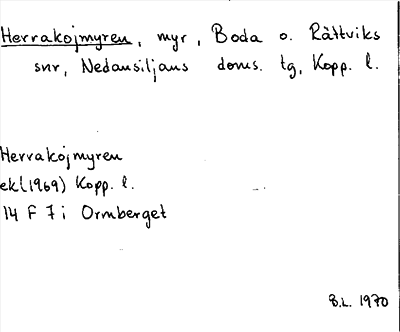 Herrakojmyren, myr, Boda o. Rättviks
snr, Nedansiljans doms. tg, Kopp. l.
Herrakojmyren
ek(1969) Kopp. l.
14 F 7 i Ormberget
B.L. 1970